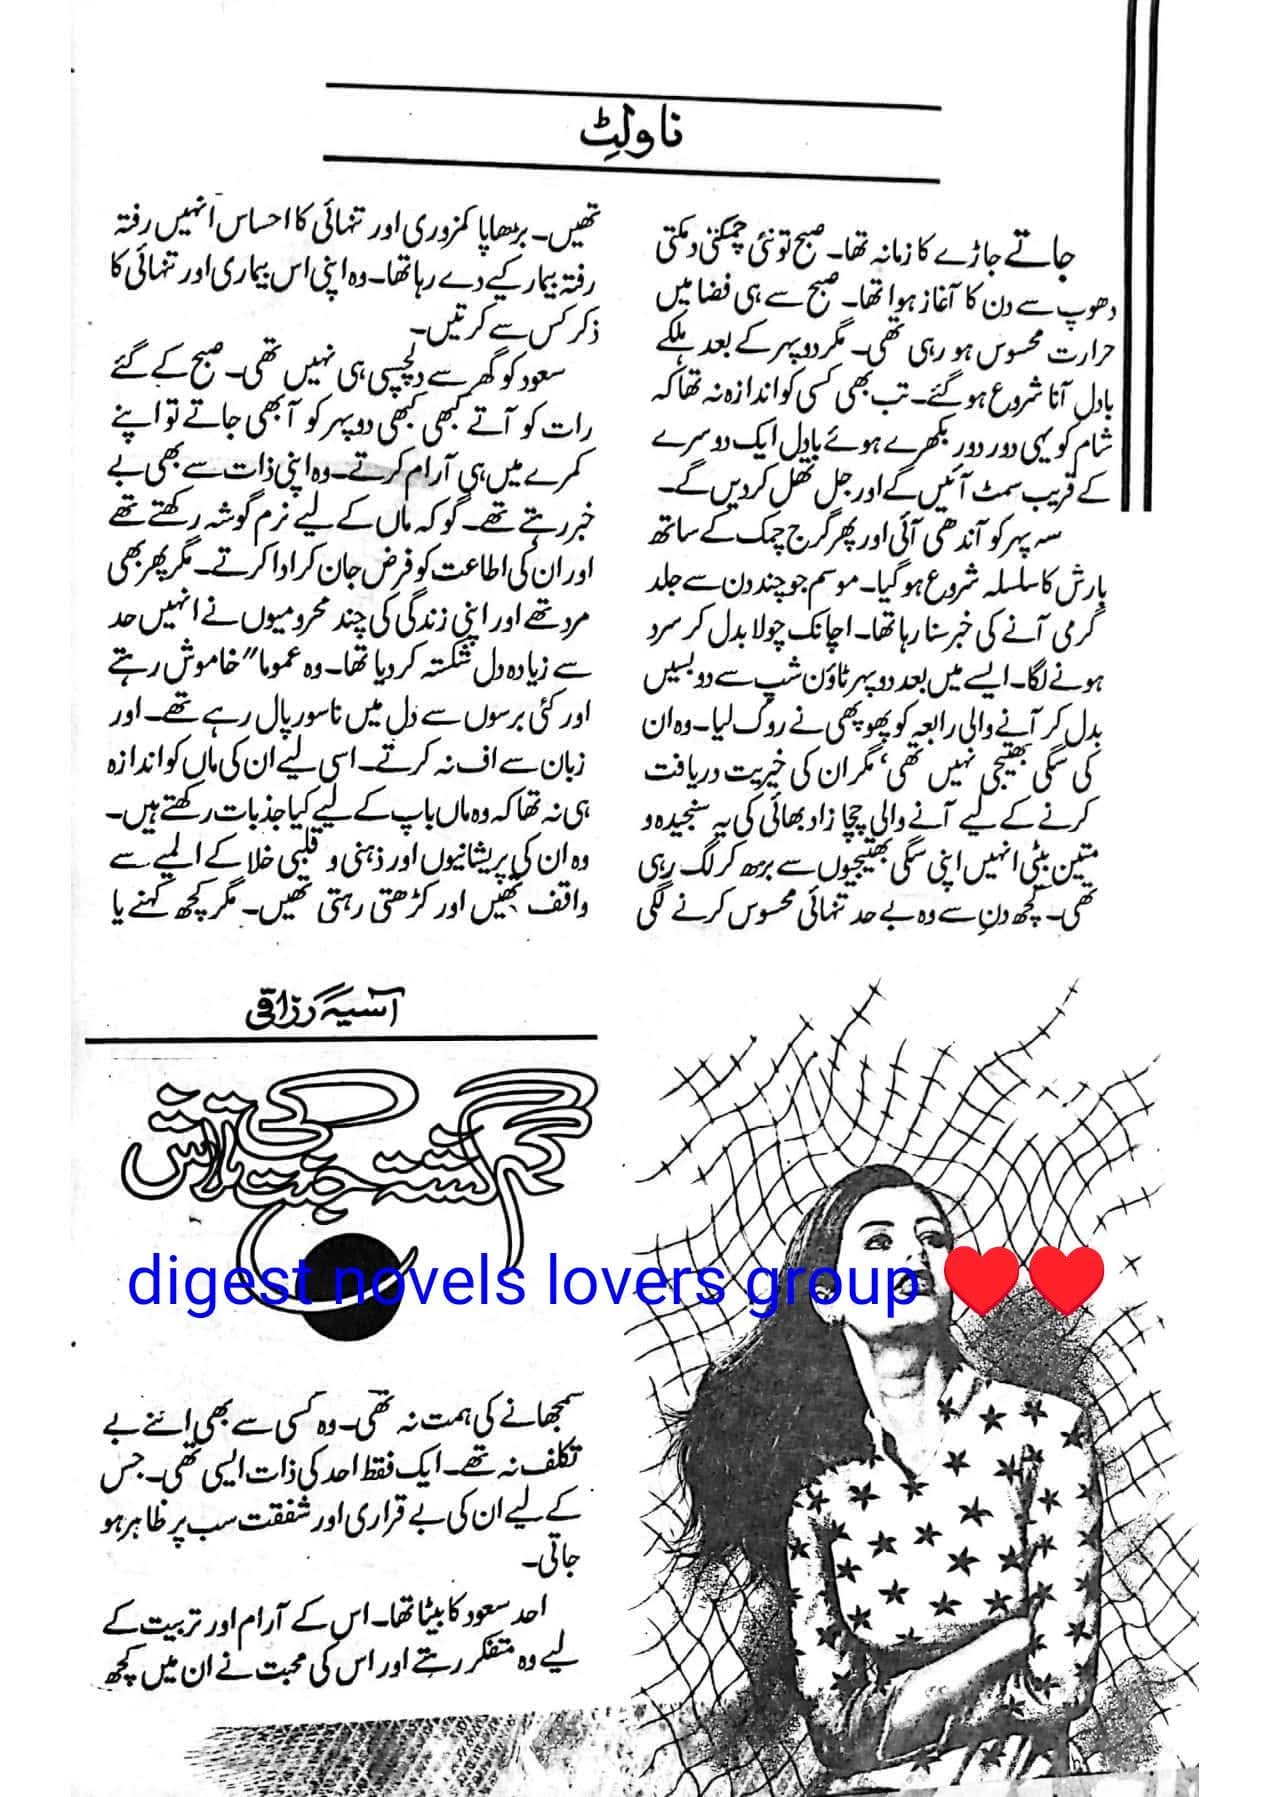 ناولٹ
جاتے جاڑے کا زمانہ تھا۔ صبح تو نئی چمکتی دمکتی
دھوپ سے دن کا آغاز ہوا تھا۔ صبح سے ہی فضا میں
حرارت محسوس ہو رہی تھی۔ مگر دوپہر کے بعد ہلکے
بادل آنا شروع ہو گئے۔ تب بھی کسی کو اندازہ نہ تھا کہ
شام کو یہی دور دور بکھرے ہوئے بادل ایک دوسرے
کے قریب سمٹ آئیں گے اور جل تھل کر دیں گے۔
سہ پہر کو آندھی آئی اور پھر گرج چمک کے ساتھ
بارش کا سلسلہ شروع ہو گیا۔ موسم جو چند دن سے جلد
گرمی آنے کی خبر سنا رہا تھا۔ اچانک چولا بدل کر سرد
ہونے لگا۔ ایسے میں بعد دوپہر ٹاؤن شپ سے دو بسیں
بدل کر آنے والی رابعہ کو پھوپھی نے روک لیا۔ وہ ان
کی سگی بھتیجی نہیں تھی، مگر ان کی خیریت دریافت
کرنے کے لیے آنے والی چچا زاد بھائی کی یہ سنجیدہ و
متین بیٹی انہیں اپنی سگی بھتیجیوں سے بڑھ کر لگ رہی
تھی۔ کچھ دن سے وہ بے حد تنہائی محسوس کرنے لگی
تھیں۔ بڑھاپا کمزوری اور تنہائی کا احساس انہیں رفتہ
رفتہ بیمار کیے دے رہا تھا۔ وہ اپنی اس بیماری اور تنہائی کا
ذکر کس سے کرتیں۔
سعود کو گھر سے دلچسپی ہی نہیں تھی۔ صبح کے گئے
رات کو آتے کبھی کبھی دوپہر کو آ بھی جاتے تو اپنے
کمرے میں ہی آرام کرتے۔ وہ اپنی ذات سے بھی بے
خبر رہتے تھے۔ گو کہ ماں کے لیے نرم گوشہ رکھتے تھے
اور ان کی اطاعت کو فرض جان کر ادا کرتے۔ مگر پھر بھی
مرد تھے اور اپنی زندگی کی چند محرومیوں نے انہیں حد
سے زیادہ دل شکستہ کر دیا تھا۔ وہ عموما" خاموش رہتے
اور کئی برسوں سے دل میں ناسور پال رہے تھے۔ اور
زبان سے اف نہ کرتے۔ اسی لیے ان کی ماں کو اندازہ
ہی نہ تھا کہ وہ ماں باپ کے لیے کیا جذبات رکھتے ہیں۔
وہ ان کی پریشانیوں اور ذہنی و قلبی خلا کے المیے سے
واقف تھیں اور کڑھتی رہتی تھیں۔ مگر کچھ کہنے یا
آسیہ رزاقی
گم گشتہ جنت کی تلاش
digest novels lovers group ♥♥
سمجھانے کی ہمت نہ تھی۔ وہ کسی سے بھی اتنے بے
تکلف نہ تھے۔ ایک فقط احد کی ذات ایسی تھی۔ جس
کے لیے ان کی بے قراری اور شفقت سب پر ظاہر ہو
جاتی۔
احد سعود کا بیٹا تھا۔ اس کے آرام اور تربیت کے
لیے وہ متفکر رہتے اور اس کی محبت نے ان میں کچھ